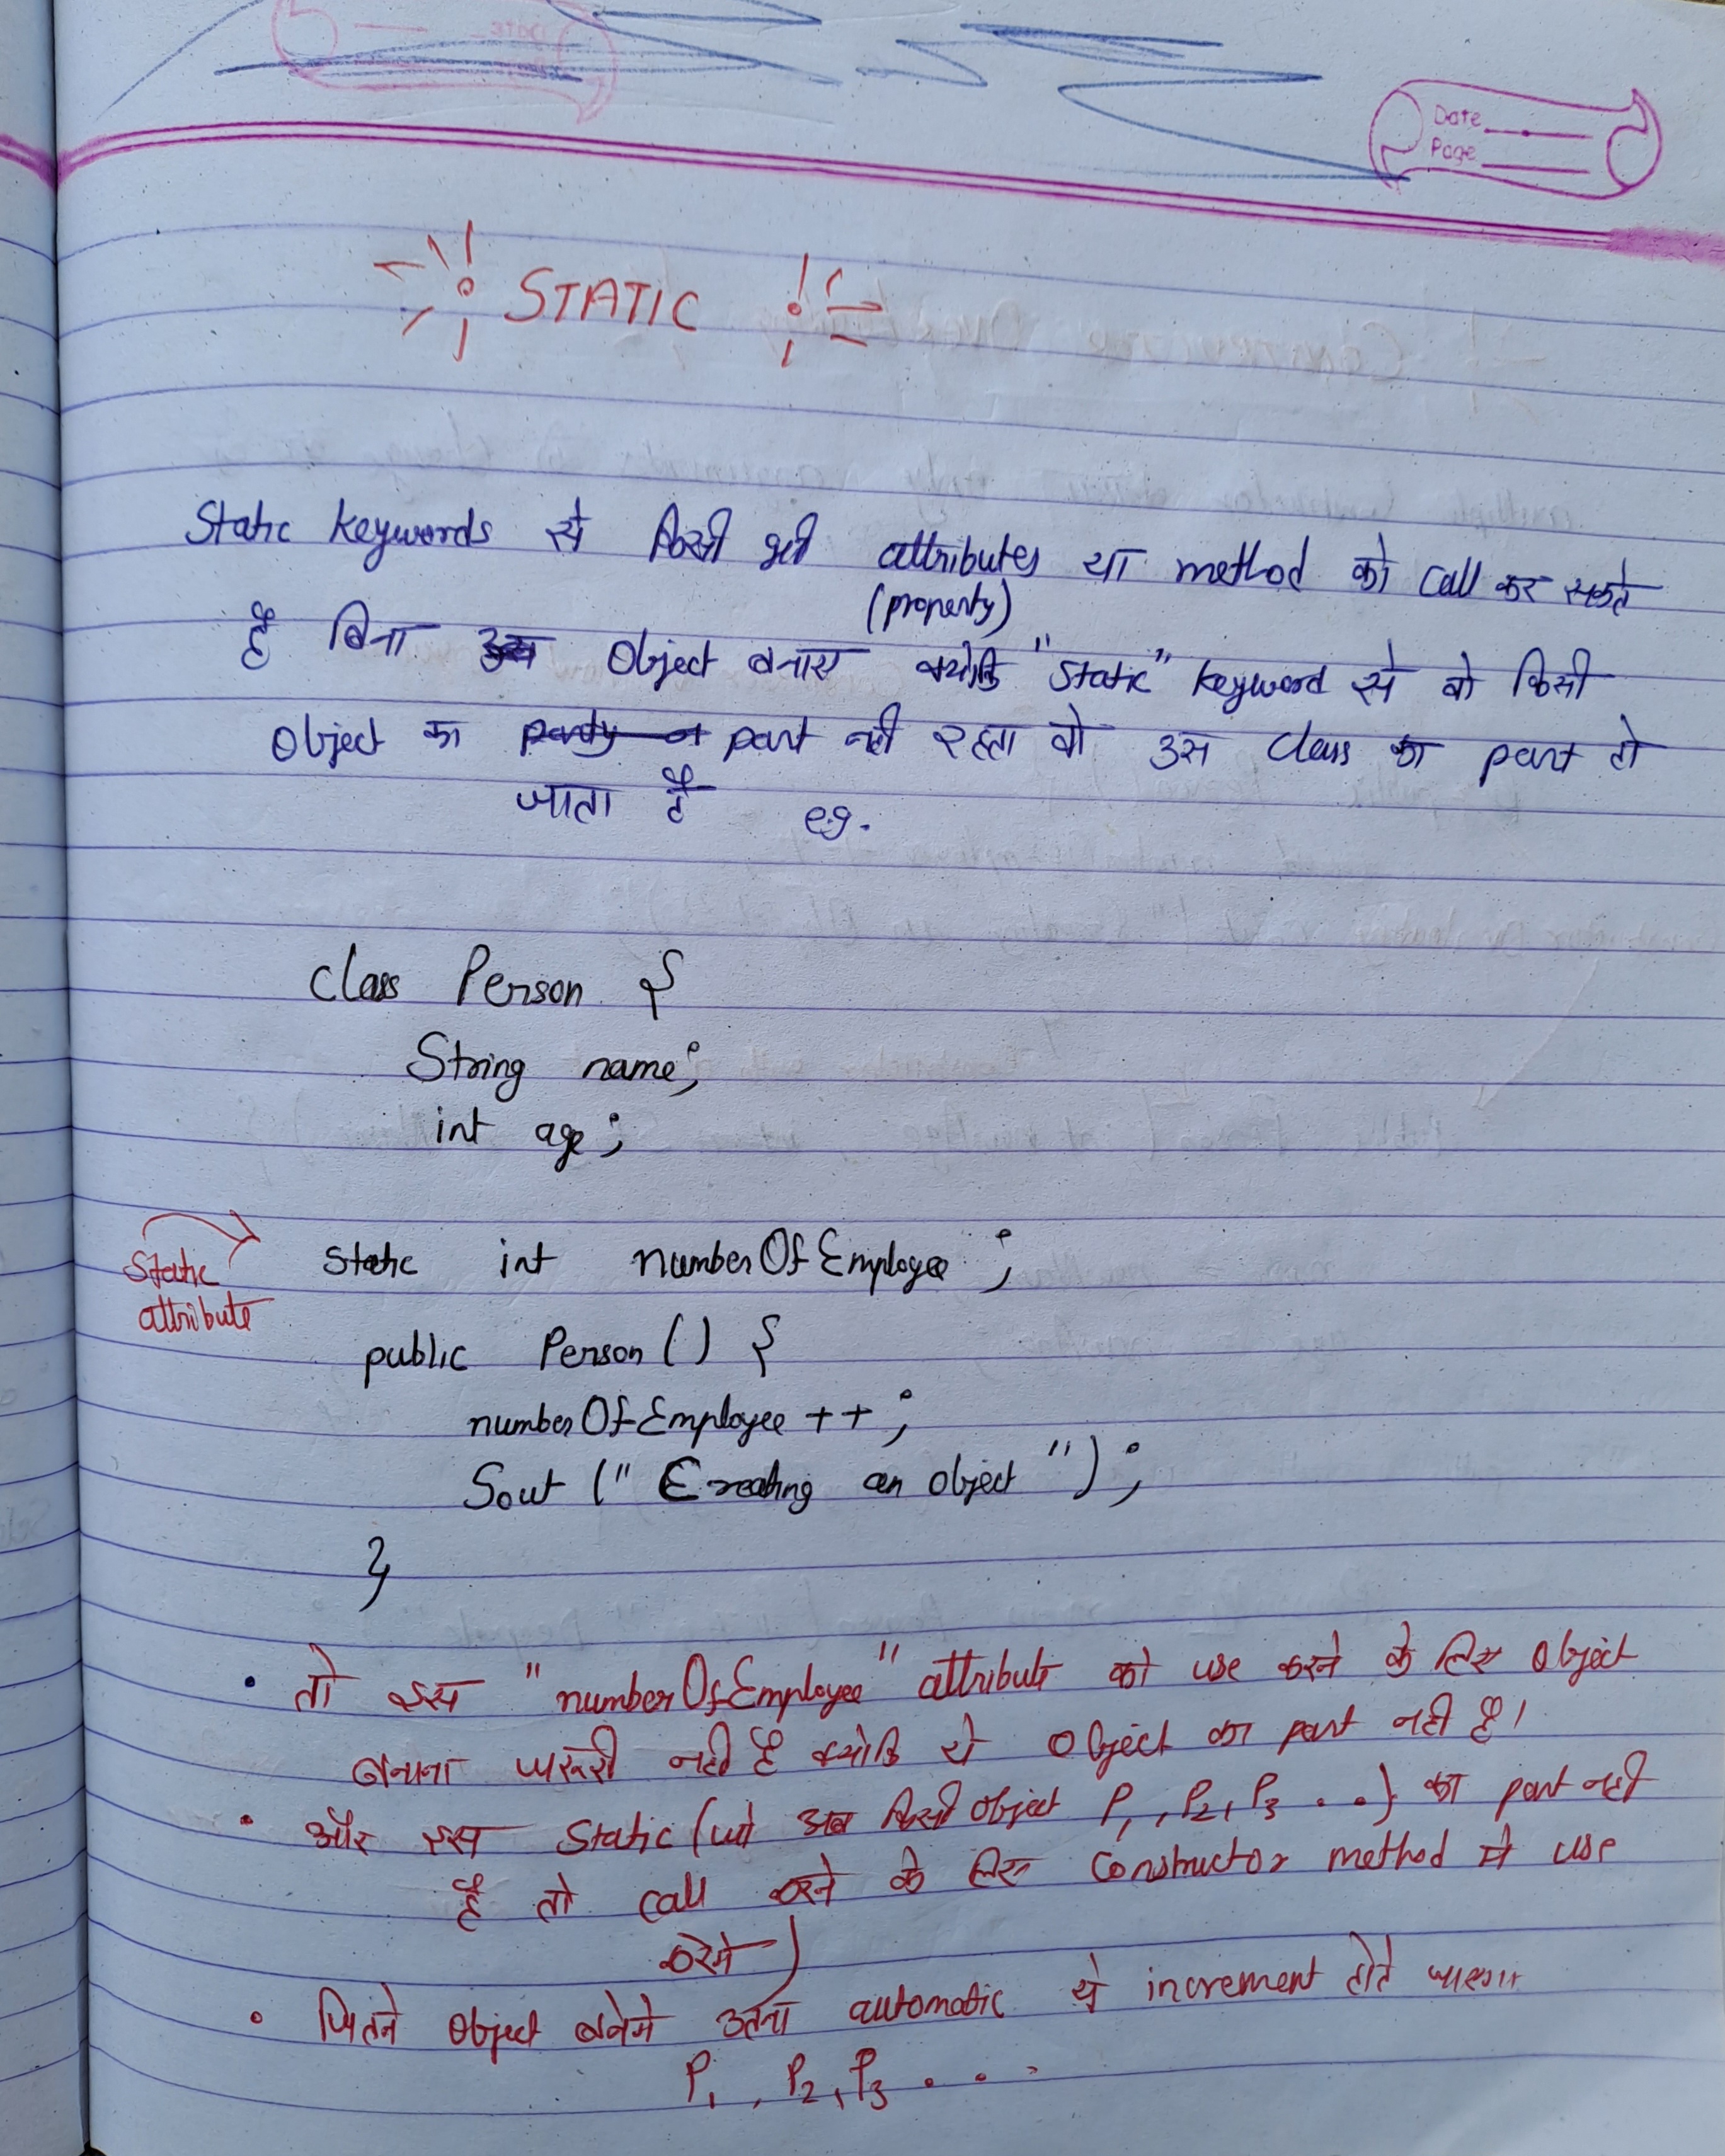 Date
Page
STATIC
Static keywords से किसी भी attributes या method को call कर सकते
(property)
है बिना object बनाए क्योकि "Static" keyword से वो किसी
object का part नही रहता वो उस class का part हो
जाता है e.g.
class Person {
String name;
int age;
Static attribute
static int numberOfEmployee ;
public Person () {
numberOfEmployee ++ ;
Sout (" Creating an object ") ;
}
• तो इस "numberOfEmployee" attribute को use करने के लिए object
बनाना जरूरी नही है क्योकि ये object का part नही है।
• और इस Static (जो अब किसी object P1, P2, P3 . . .) का part नही
है तो call करने के लिए constructor method मे use
करेगे)
• जितने object बनेगे उतना automatic ये increment होते जाएगा
P1, P2, P3 . . .